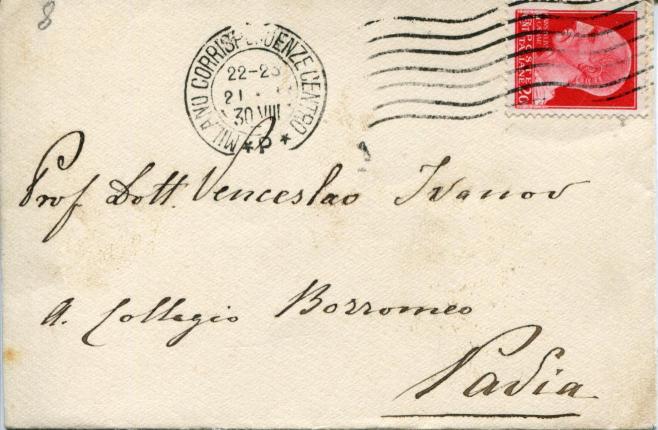 8
MILANO CORRISPONDENZE CENTRO
22-23
21 ·
30 VIII
★ P ★
POSTE ITALIANE
20
Prof. Dott. Venceslao Ivanov
A. Collegio Borromeo
Pavia